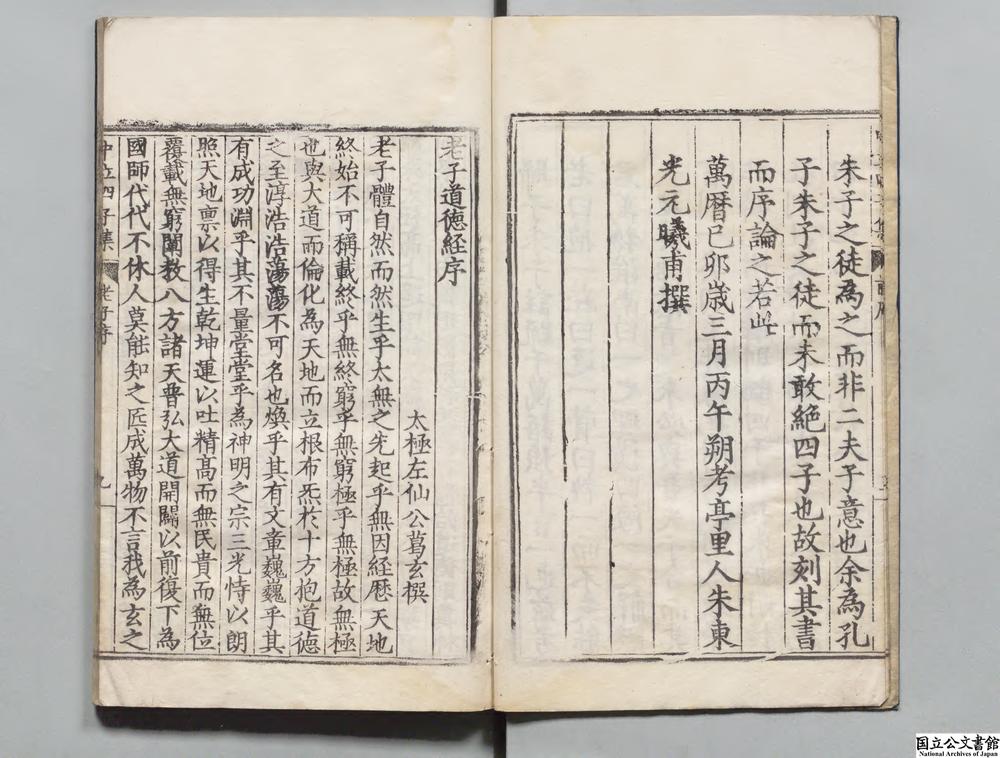 朱子之徒為之而非二夫子意也余為孔
子朱子之徒而未敢絶四子也故刻其書
而序論之若此
萬曆己卯歳三月丙午朔考亭里人朱東
光元曦甫撰
老子道德経序
太極左仙公葛玄撰
老子體自然而然生乎太無之先起乎無因経歷天地
終始不可稱載終乎無終窮乎無窮極乎無極故無極
也與大道而倫化為天地而立根布炁於十方抱道德
之至淳浩浩蕩蕩不可名也煥乎其有文章巍巍乎其
有成功淵乎其不量堂堂乎為神明之宗三光恃以朗
照天地禀以得生乾坤運以吐精高而無民貴而無位
覆載無窮闡教八方諸天普弘大道開闢以前復下為
國師代代不休人莫能知之匠成萬物不言我為玄之
中立四子集 老子序 九
国立公文書館
National Archives of Japan